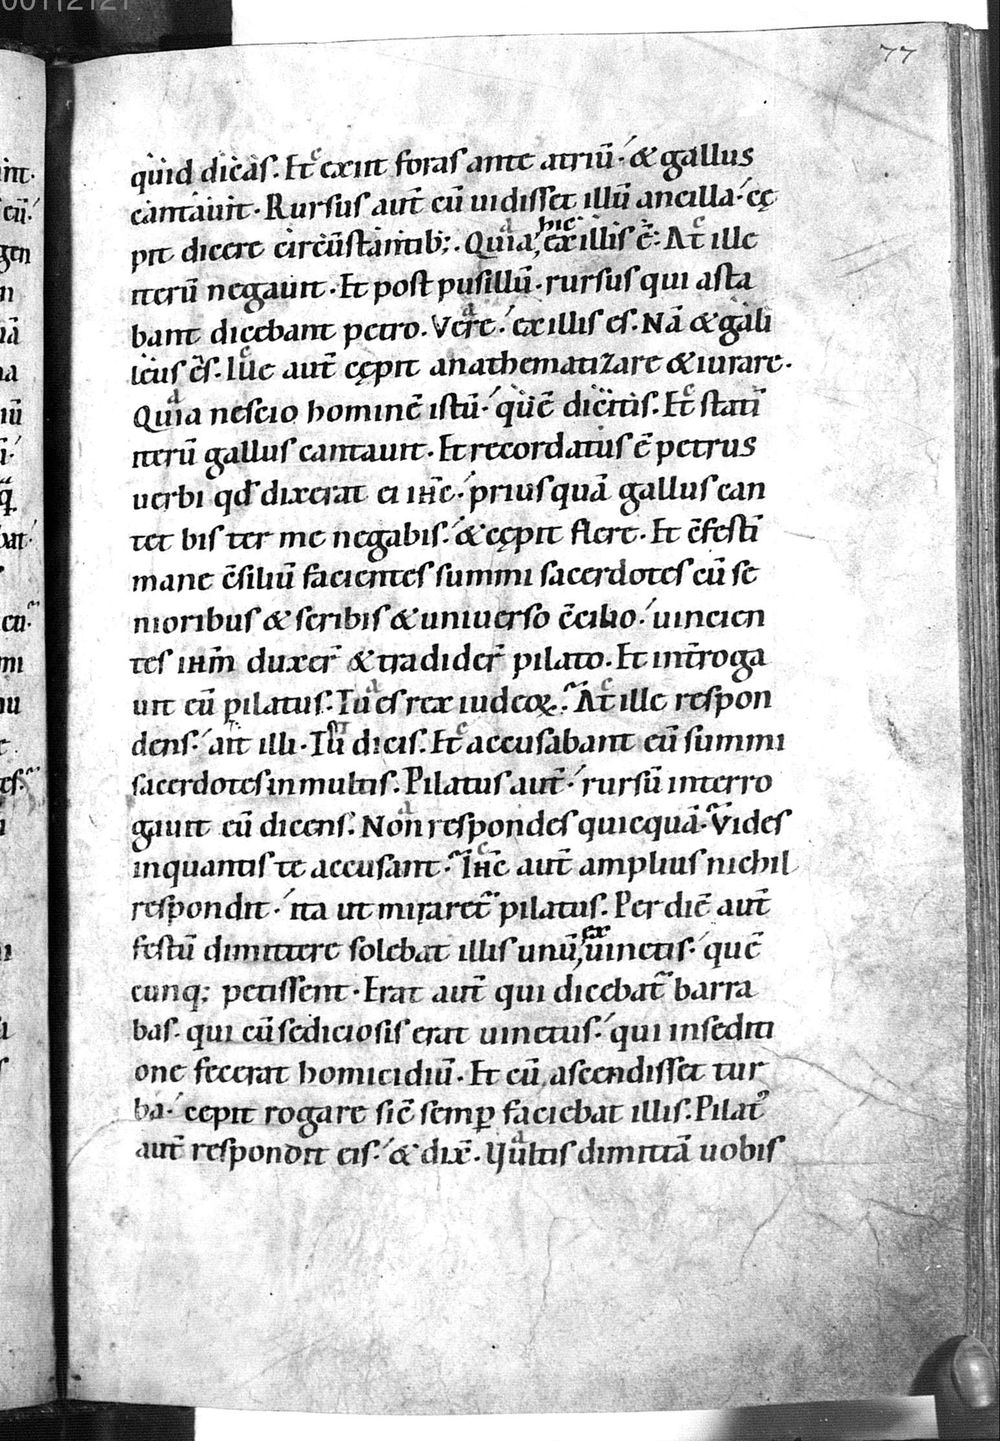 77
quid dicas. Et exiit foras ante atriū. & gallus
cantauit. Rursus aut̄ cū uidisset illū ancilla. cę
pit dicere circūstantib;. Quia hic ex illis ē. At ille
iterū negauit. Et post pusillū. rursus qui asta
bant dicebant petro. Vere. ex illis es. Nā & gali
lęus es. Ille aut̄ cępit anathematizare & iurare.
Quia nescio hominē istū. quē dicitis. Et statī
iterū gallus cantauit. Et recordatus ē petrus
uerbi qd̄ dixerat ei ihc̄. prius quā gallus can
tet bis ter me negabis. & cępit flere. Et c̄festī
mane c̄siliū facientes summi sacerdotes cū se
nioribus & scribis & uniuerso c̄cilio. uincien
tes ihm̄ duxer̄ & tradider̄ pilato. Et int̄roga
uit eū pilatus. Tu es rex iudeoꝝ. At ille respon
dens. ait illi. Tu dicis. Et accusabant eū summi
sacerdotes in multis. Pilatus aut̄. rursū interro
gauit eū dicens. Non respondes quicquā. Vides
inquantis te accusant. Ihc̄ aut̄ amplius nichil
respondit. ita ut miraret̄ pilatus. Per diē aut̄
festū dimittere solebat illis unū ex uinctis. quē
cunq; petissent. Erat aut̄ qui dicebat̄ barra
bas. qui cū sediciosis erat uinctus. qui in sediti
one fecerat homicidiū. Et cū ascendisset tur
ba. cepit rogare sic̄ semꝑ faciebat illis. Pilat᾽
aut̄ respondit eis. & dix̄. Vultis dimittā uobis